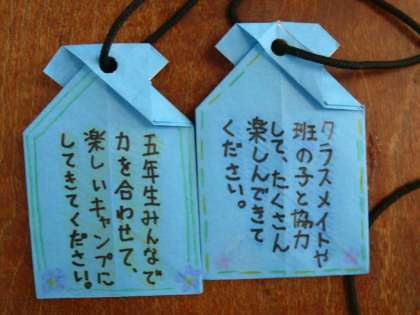 五年生みんなで
力を合わせて、
楽しいキャンプに
してきてください。
クラスメイトや
班の子と協力
して、たくさん
楽しんできて
ください。